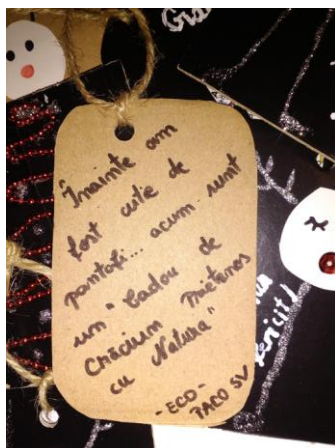 Înainte am
fost cutie de
pantofi... acum sunt
un "Cadou de
Crăciun Prietenos
cu Natura"
-ECO-
PACO SV